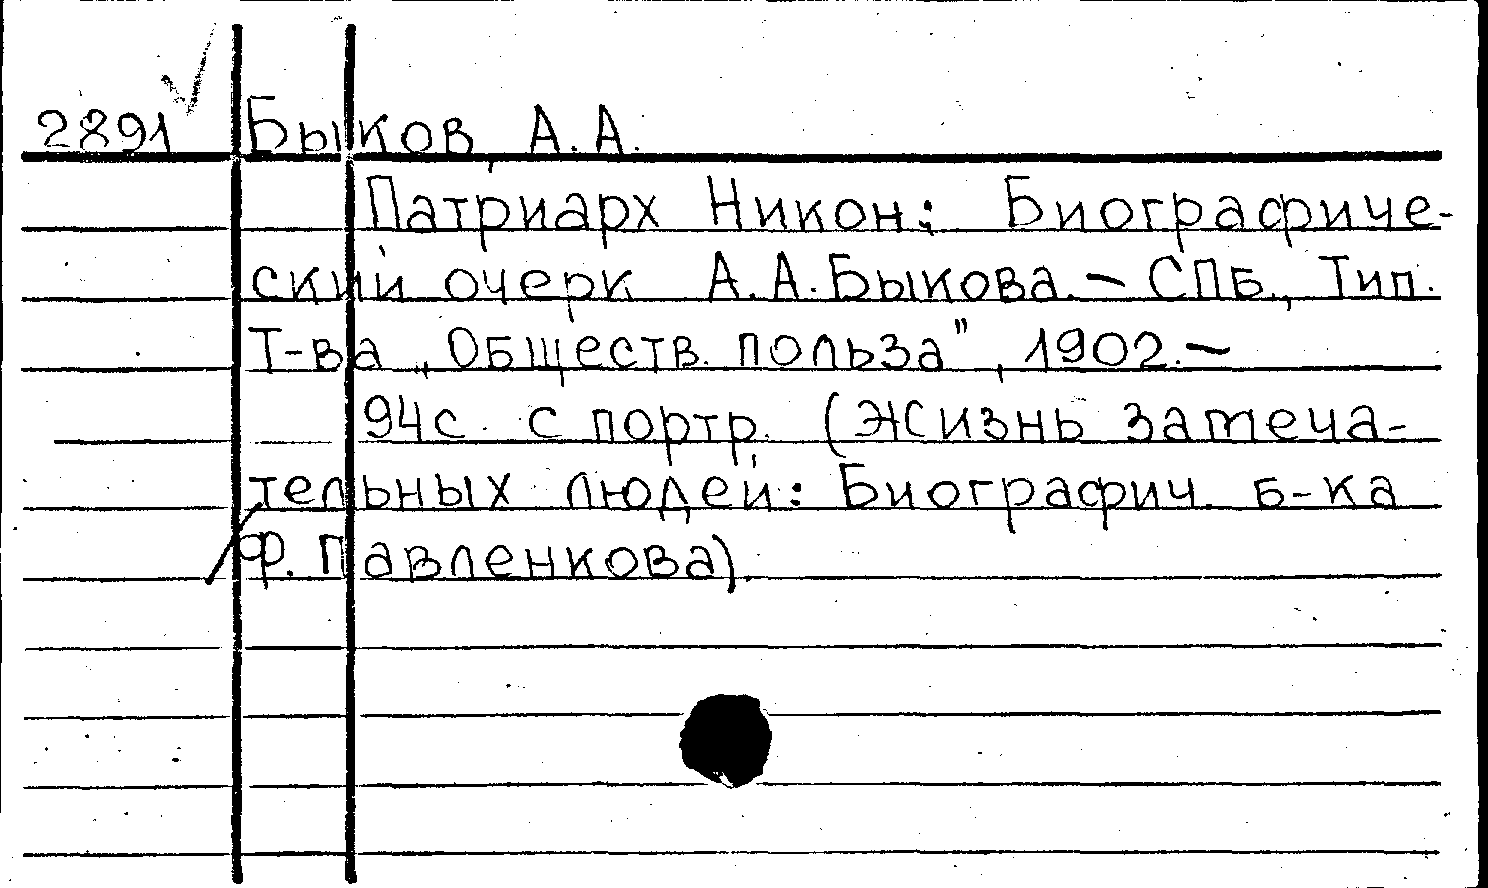 2891 Быков, А.А.
Патриарх Никон: Биографиче-
ский очерк А.А.Быкова.- СПБ., Тип.
Т-ва „Обществ. польза", 1902.-
94с. с портр. (Жизнь замеча-
тельных людей: Биографич. б-ка
Ф. Павленкова).